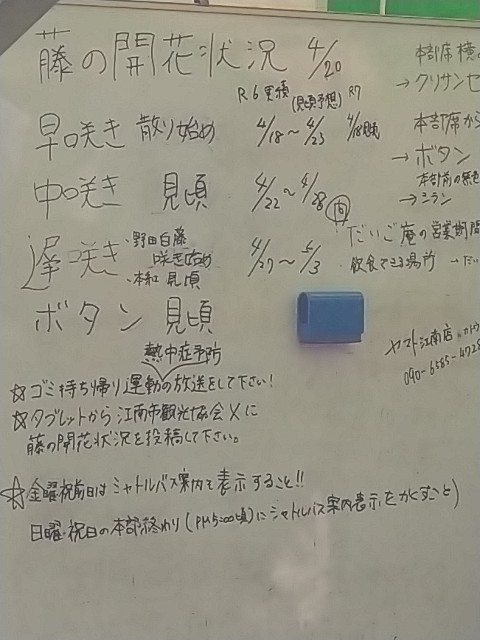 藤の開花状況 4/20
R6実績 (見頃予想) R7
早咲き 散り始め 4/18〜4/23 4/18
中咲き 見頃 4/22〜4/28
遅咲き ・野田白藤 咲き始め ・本紅 見頃 4/27〜5/3
ボタン 見頃
熱中症予防
☆ゴミ持ち帰り運動の放送をして下さい!
☆タブレットから江南市観光協会Xに
藤の開花状況を投稿して下さい。
☆金曜祝前日はシャトルバス案内を表示すること!!
日曜・祝日の本部終わり(PM5:00頃)にシャトルバス案内表示をかくすこと)
本部席横の
→クリサンセ
本部席から
→ボタン
本部前の紫色
→シラン
だいご庵の営業期間
飲食できる場所 →だい
ヤマト江南店
090-6585-4728